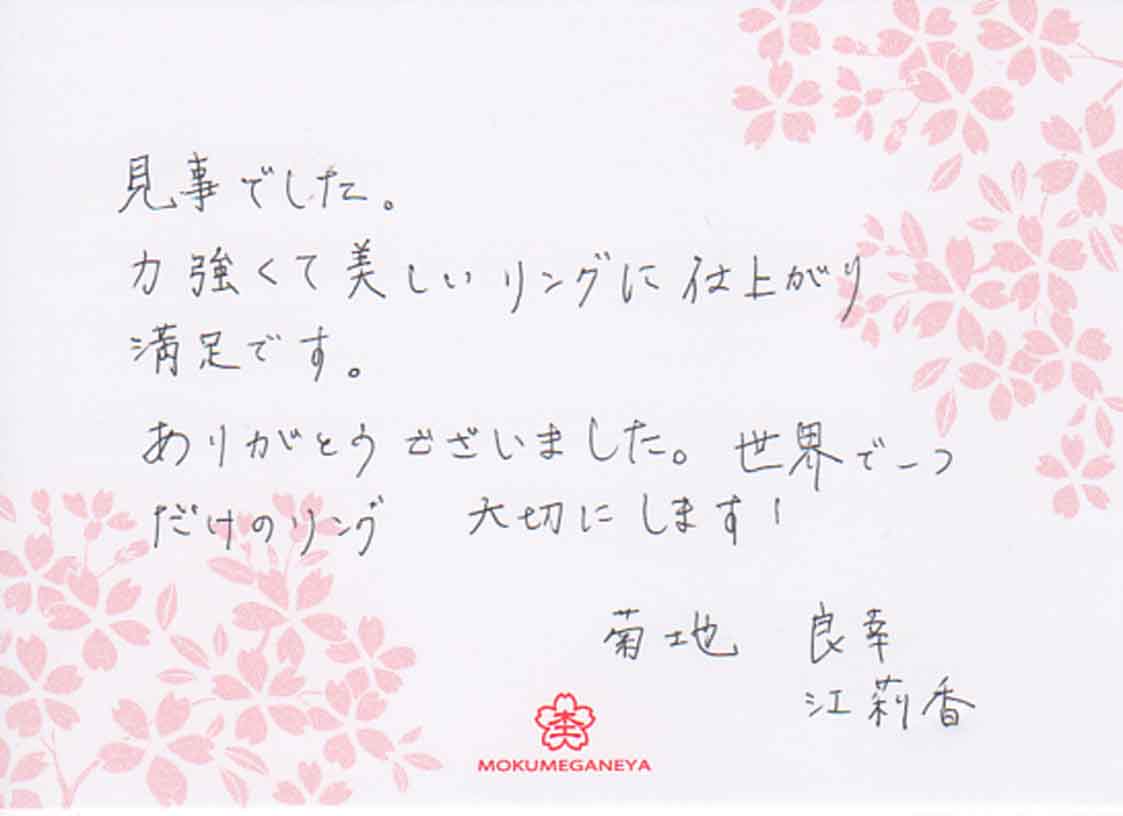 見事でした。
力強くて美しいリングに仕上がり
満足です。
ありがとうございました。世界で一つ
だけのリング 大切にします!
菊地 良幸
江莉香
MOKUMEGANEYA